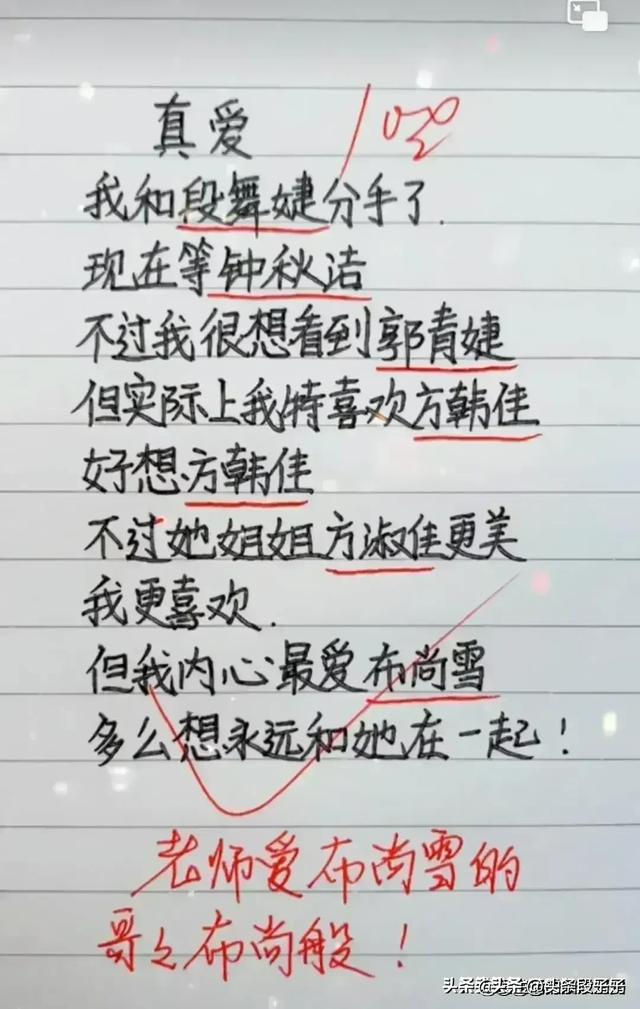 真爱
100
我和段舞婕分手了.
现在等钟秋洁
不过我很想看到郭青婕
但实际上我特喜欢方韩佳
好想方韩佳
不过她姐姐方淑佳更美
我更喜欢.
但我内心最爱布尚雪
多么想永远和她在一起!
老师爱布尚雪的
哥哥布尚般!